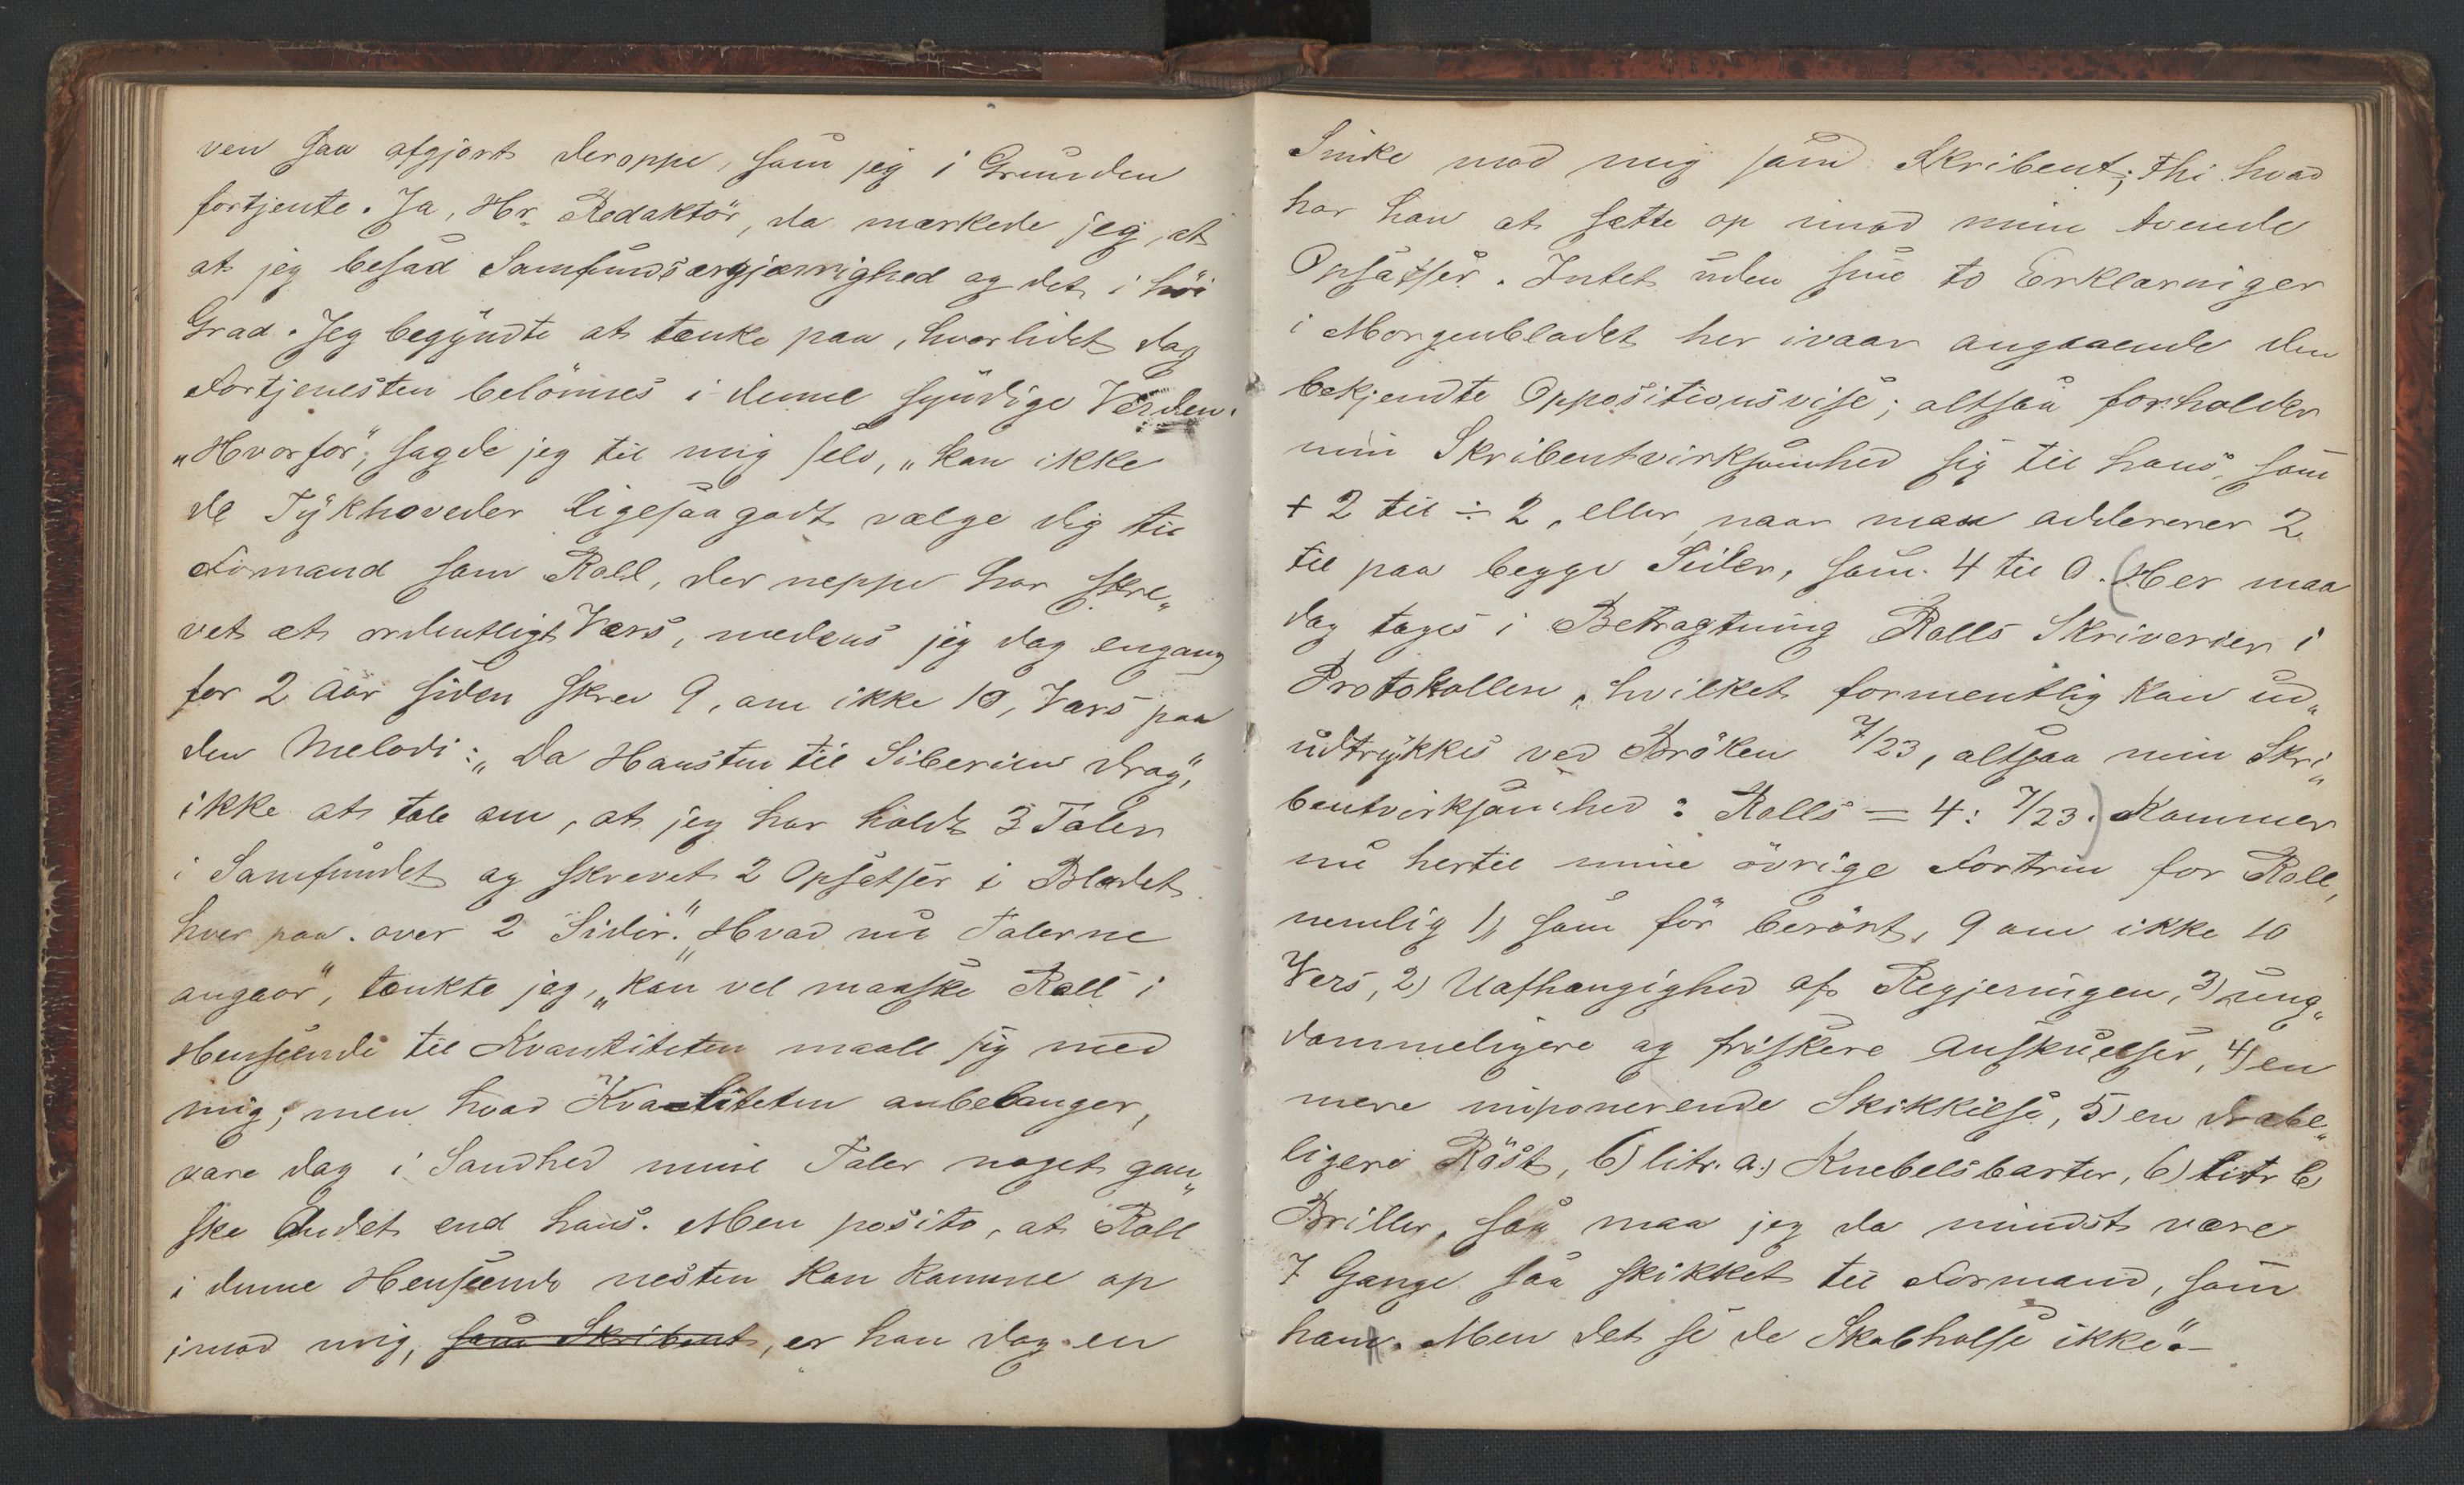 ven saa afgjort deroppe, som jeg i Grunden
fortjente. Ja, Hr. Redaktör, da mærkede jeg, at
at jeg besad Samfundsærgjærrighed og det i höi
Grad. Jeg begyndte at tænke paa, hvor lidet dog
Fortjenesten belönnes i denne syndige Verden.
„Hvorfor”, sagde jeg til mig selv, „kan ikke
de Tykhoveder ligesaagodt vælge dig til
Formand som Roll, der neppe har skre„
vet et ordentligt Værs, medens jeg dog engang
for 2 Aar siden skrev 9, om ikke 10, Værs paa
den Melodi: „Da Hansten til Siberien drog”,
ikke at tale om, at jeg har holdt 3 Taler
i Samfundet og skrevet 2 Opsatser i Bladet
hver paa over 2 Sider.” „Hvad nu Talerne
angaar”, tænkte jeg, „kan vel maaske Roll i
Henseende til Kvantiteten maale sig med
mig; men hvad Kvaliteten anbelanger,
vare dog i Sandhed mine Taler noget gan„
ske Andet end hans. Men posito, at Roll
i denne Henseende næsten kan komme op
imod mig, som Skribent, er han dog en
Sinke mod mig som Skribent; thi hvad
har han at sætte op imod mine tvende
Opsatser. Intet uden sine to Erklæringer
i Morgenbladet her ivaar angaaende den
bekjendte Oppositionsvise; altsaa forholder
min Skribentvirksomhed sig til hans, som
+ 2 til ÷ 2, eller naar man adderer 2
til paa begge Sider, som 4 til 0. (Her maa
dog tages i Betragtning Rolls Skriverier i
Protokollen, hvilket formentlig kan ud„
udtrykkes ved Bröken 7/23, altsaa min Skri„
bentvirksomhed : Rolls = 4 : 7/23.) Kommer
nu hertil mine övrige Fortrin for Roll,
nemlig 1) som för berört, 9 om ikke 10
Vers, 2) Uafhængighed af Regjeringen, 3) ung„
dommeligere og friskere Anskuelser, 4) en
mere imponerende Skikkelse, 5) en drabe„
ligere Röst, 6) litr. a.) Knebelsbarter, 6) litr b)
Briller, saa maa jeg da mindst være
7 Gange saa skikket til Formand, som
han. Men det se de Skabhalse ikke”.–